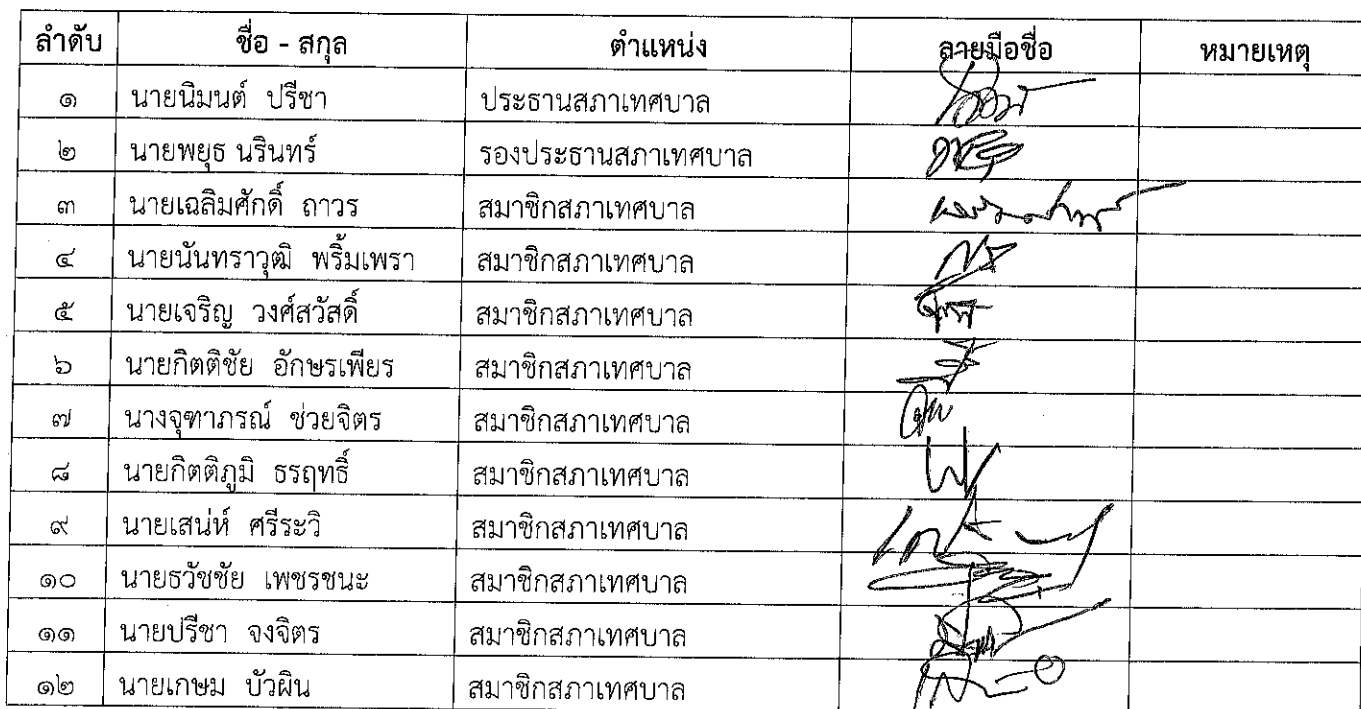 ลำดับ ชื่อ - สกุล ตำแหน่ง ลายมือชื่อ หมายเหตุ
๑ นายนิมนต์ ปรีชา ประธานสภาเทศบาล
๒ นายพยุธ นรินทร์ รองประธานสภาเทศบาล
๓ นายเฉลิมศักดิ์ ถาวร สมาชิกสภาเทศบาล
๔ นายนันทราวุฒิ พริ้มเพรา สมาชิกสภาเทศบาล
๕ นายเจริญ วงศ์สวัสดิ์ สมาชิกสภาเทศบาล
๖ นายกิตติชัย อักษรเพียร สมาชิกสภาเทศบาล
๗ นางจุฑาภรณ์ ช่วยจิตร สมาชิกสภาเทศบาล
๘ นายกิตติภูมิ ธรฤทธิ์ สมาชิกสภาเทศบาล
๙ นายเสน่ห์ ศรีระวิ สมาชิกสภาเทศบาล
๑๐ นายธวัชชัย เพชรชนะ สมาชิกสภาเทศบาล
๑๑ นายปรีชา จงจิตร สมาชิกสภาเทศบาล
๑๒ นายเกษม บัวผิน สมาชิกสภาเทศบาล